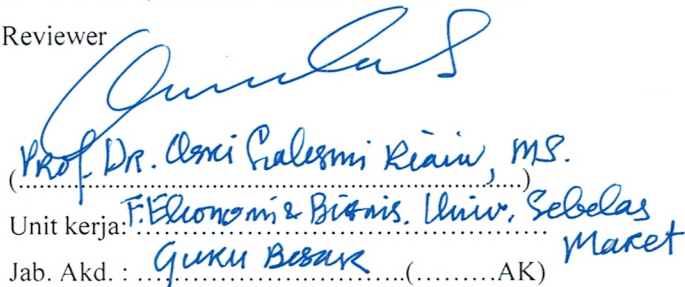 Reviewer
Prof. Dr. MS.
(........................................................................)
Unit kerja: F. Ekonomi & Bisnis. Univ. Sebelas
Maret
Jab. Akd. : .... Guru Besar ....(.........AK)